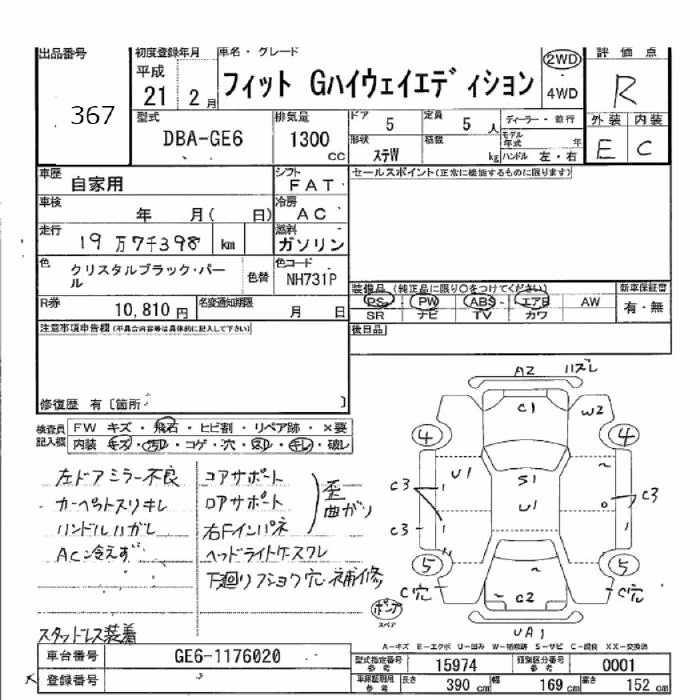 出品番号 初度登録年月 車名・グレード 評価点
367 平成 21 2月 フィット Gハイウェイエディション 2WD 4WD R
型式 DBA-GE6 排気量 1300 cc ドア 5 定員 5人 ディーラー・並行 外装 内装
形状 ステW 積載 kg モデル年式 年 ハンドル 左・右 E C
車歴 自家用 シフト FAT セールスポイント(正常に機能するものに限ります)
車検 年 月( 日) 冷房 AC
走行 19万7千398 km 燃料 ガソリン
色 クリスタルブラック・パール 色替 色コード NH731P
装備品 (純正品に限り○をつけてください) 新車保証書
PS PW ABS エアB AW 有・無
SR ナビ TV カワ
R券 10,810円 名変通知期限 月 日
後日品
注意事項申告欄(不具合内容等は具体的に記入して下さい)
修復歴 有〔箇所: 〕
検査員記入欄 FW キズ・飛石・ヒビ割・リペア跡・×要
内装 キズ・汚れ・コゲ・穴・スレ・キレ・破レ
左ドアミラー不良
カーペットスリキレ
ハンドルハガレ
AC冷えず
コアサポート
ロアサポート
右Fインパネ
歪 曲がり
ヘッドライトケースワレ
下廻りフショク穴・補修
スタッドレス装着
A2 ハズレ
C1 W2
4 4
U1 S1 〜
C3 U1 C3
C3
5 5
C穴 〜 C穴
C2
スペア
UA1
A-キズ E-エクボ U-凹み W-補修跡 S-サビ C-腐食 XX-交換済
車台番号 GE6-1176020 型式指定番号 参考 15974 類別区分番号 参考 0001
登録番号 車庫証明用 参考 長さ 390cm 幅 169cm 高さ 152cm